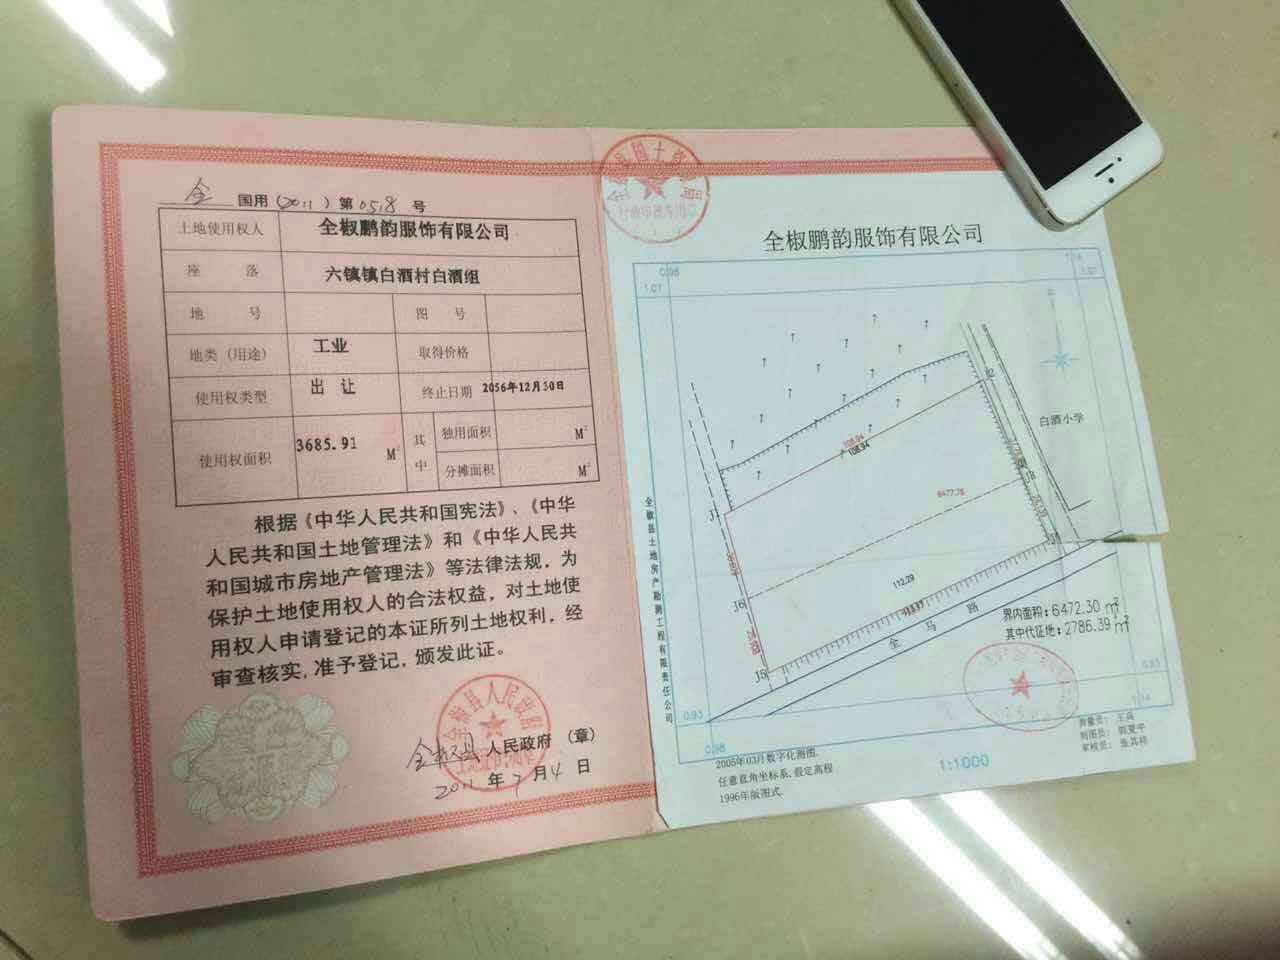 全 国用 (2011) 第 0518 号
土地使用权人 全椒鹏韵服饰有限公司
座 落 六镇镇白酒村白酒组
地 号 图 号
地类 (用途) 工业 取得价格
使用权类型 出 让 终止日期 2056年12月30日
使用权面积 3685.91 M² 其中 独用面积 M²
分摊面积 M²
根据《中华人民共和国宪法》、《中华
人民共和国土地管理法》和《中华人民共
和国城市房地产管理法》等法律法规，为
保护土地使用权人的合法权益，对土地使
用权人申请登记的本证所列土地权利，经
审查核实，准予登记，颁发此证。
全椒县人民政府
全椒县 人民政府 (章)
2011 年 7 月 4 日
全椒鹏韵服饰有限公司
0.98
1.07
1.14
1.07
北
白酒小学
108.94
108.94
6477.76
J7
J8
J6
J5
112.29
全 马 路
界内面积：6472.30 m²
其中代征地：2786.39 m²
全椒县土地房产勘测工程有限责任公司
0.93
0.93
0.98
1.14
2005年03月数字化测图.
任意直角坐标系,假定高程
1996年版图式.
1:1000
测量员：王兵
制图员：
审核员：张其祥